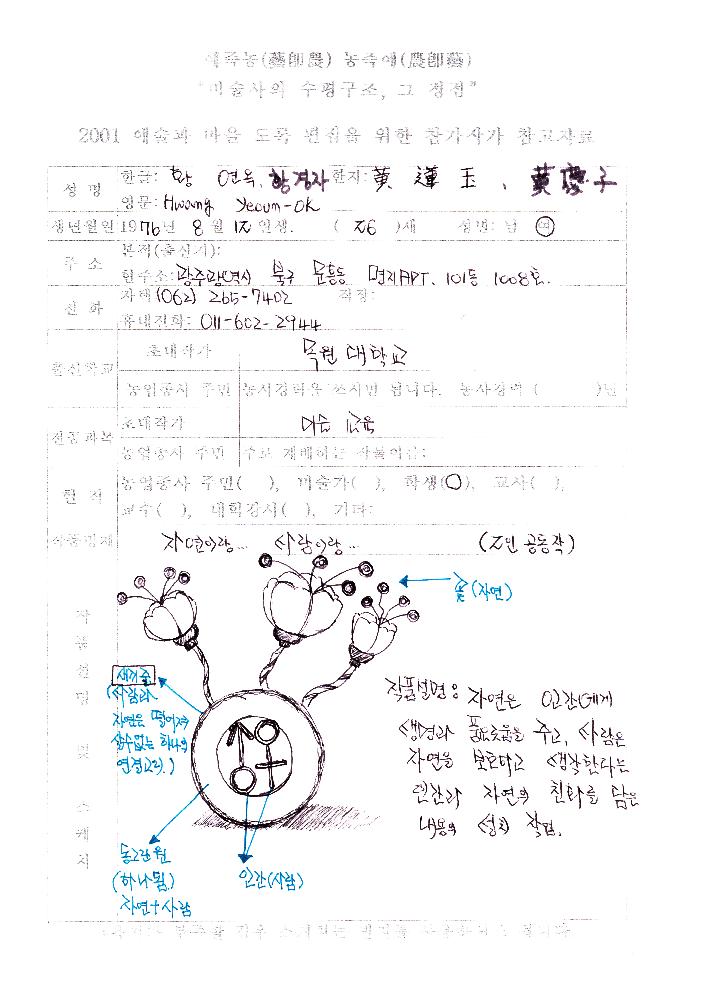 예즉농(藝卽農) 농즉예(農卽藝)
"미술사의 수평구조, 그 정점"
2001 예술과 마을 도록 편집을 위한 참가자가 참고자료
성 명
한글: 황 연옥, 황경자 한자: 黃 蓮 玉 , 黃慶子
영문: Hwang Yeoun-OK
생년월일 1976년 8월 12일생. ( 26 )세 성별: 남 여
주 소
본적(출신지):
현주소: 광주광역시 북구 문흥동 명지APT. 101동 1008호.
전 화
자택(062) 265-7402 직장:
휴대전화: 011-602-2944
출신학교
초대작가 목원 대학교
농업종사 주민 농사경력을 쓰시면 됩니다. 농사경력 ( )년
전공과목
초대작가 미술 교육
농업종사 주민 주로 재배하는 작물이름:
현 직
농업종사 주민( ), 미술가( ), 학생(O), 교사( ),
교수( ), 대학강사( ), 기타:
작품명제 자연이랑... 사람이랑... (2인 공동작)
작품설명 및 스케치
꽃(자연)
새끼줄
(사람과
자연은 떨어져
살수없는 하나의
연결고리.)
작품설명: 자연은 인간에게
생명과 풍요로움을 주고, 사람은
자연을 보호하고 생각한다는
인간과 자연의 친화를 담은
내용의 설치 작품.
동그란 원
(하나됨.)
자연+사람
인간(사람)